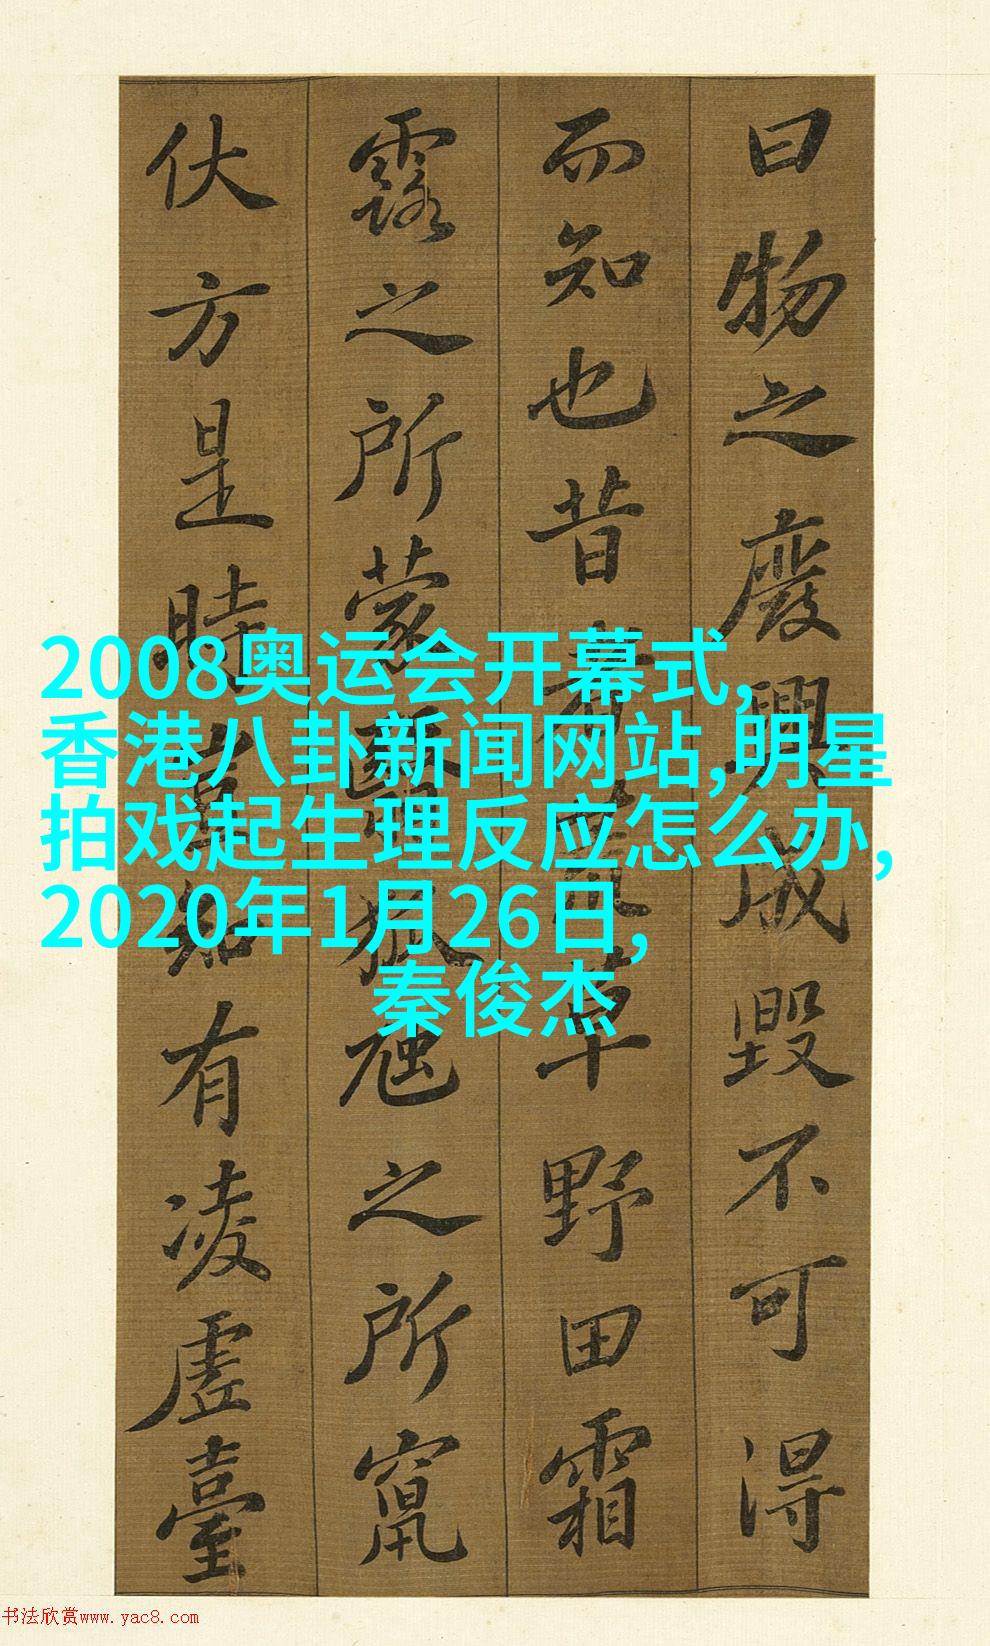 曰物之廢興成毀不可得
而知也昔者荒草野田霜
露之所蒙翳狐虺之所竄
伏方是時豈知有凌虛臺
2008奥运会开幕式,
香港八卦新闻网站,明星
拍戏起生理反应怎么办,
2020年1月26日,
秦俊杰
书法欣赏www.yac8.com